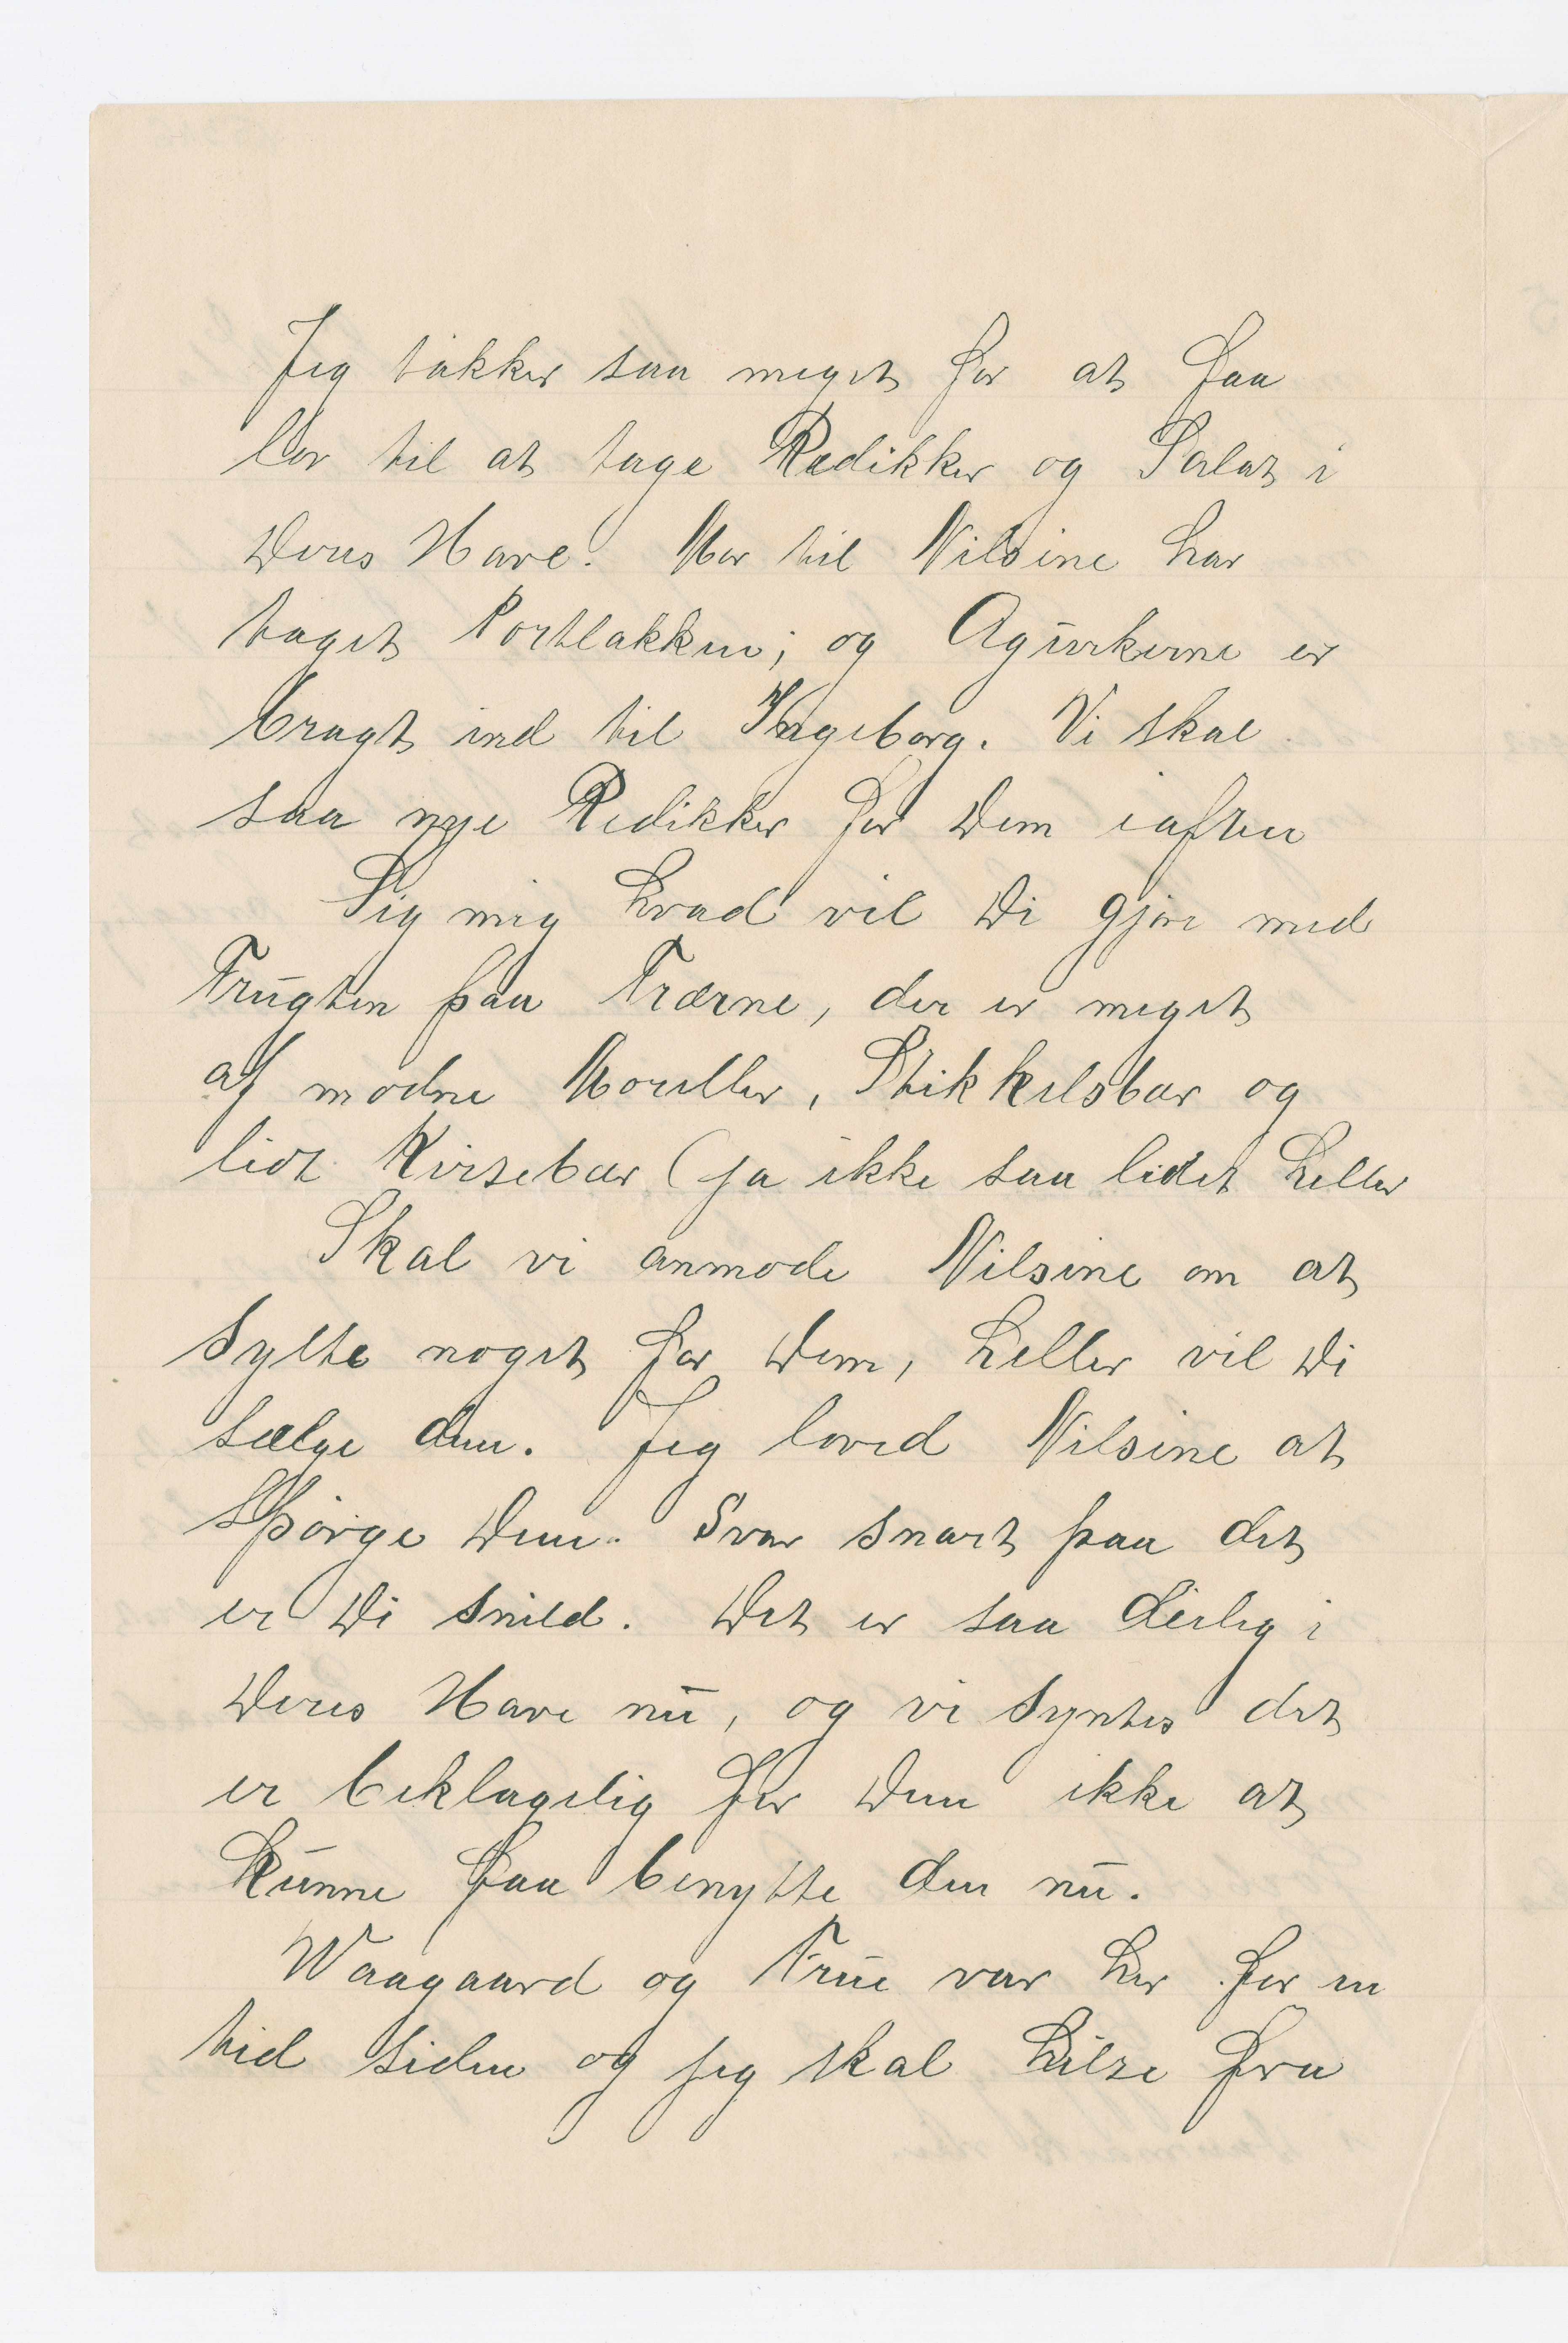 Jeg takker saa meget for at faa
lov til at tage Rædikker og Salat i
Deres Have. Mor til Nilsine har
taget Portlakken; og Agurkerne er
bragt ind til Ingeborg. Vi skal
saa nye Redikker for Dem iaften
Sig mig hvad vil Di gjøre med
Frugten paa Trærne, der er meget
af modne Moreller, Stikkelsbær og
lidt Kirsebær (ja ikke saa lidet heller
Skal vi anmode Nilsine om at
sylte noget for Dem, heller vil Di
sælge den. Jeg loved Nilsine at
spørge Dem. Svar snart paa det
er Di snild. Det er saa deilig i
Deres Have nu, og vi syntes det
er beklagelig for Dem ikke at
kunne faa benytte den nu.
Waagaard og Frue var her for en
tid siden og jeg skal hilse fra